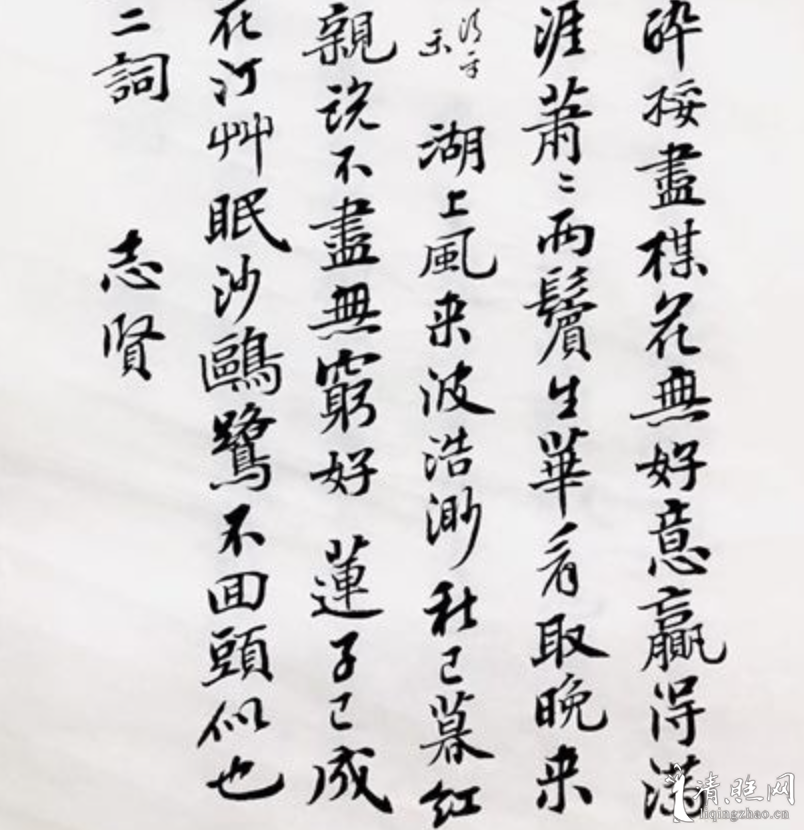 醉挼盡楳花無好意贏得滿
涯蕭〻兩鬢生華看取晚来
清平
乐
湖上風来波浩渺秋已暮紅
親說不盡無窮好 蓮子已成
花汀艸眠沙鷗鷺不回頭似也
二詞 志賢
清旺网
liqingzhao.cn